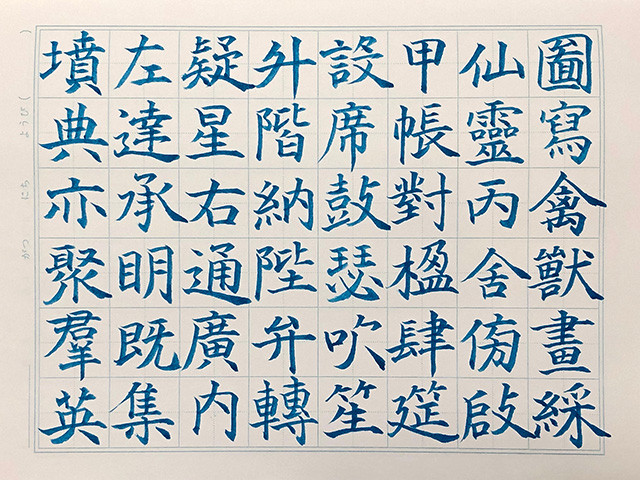 圖寫禽獸畫綵
仙靈丙舍傍啟
甲帳對楹肆筵
設席鼓瑟吹笙
升階納陛弁轉
疑星右通廣内
左達承明既集
墳典亦聚羣英
がつ にち ( ようび )